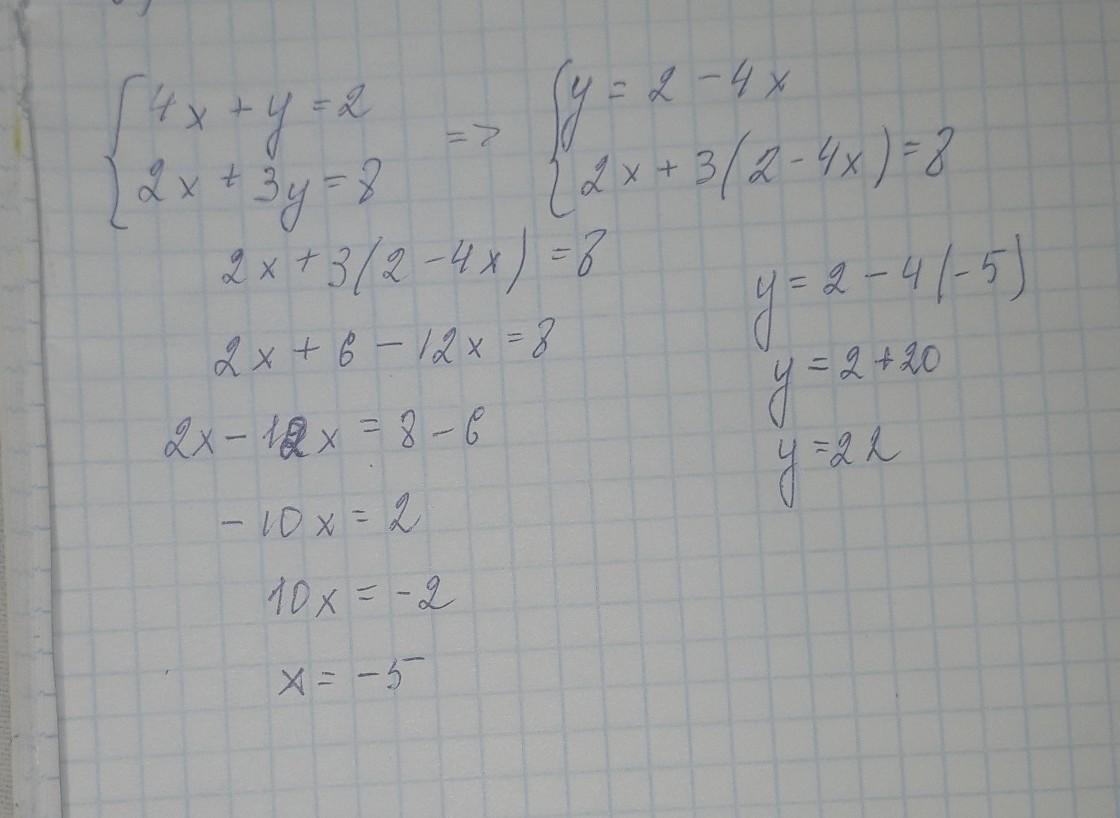 4x + y = 2
2x + 3y = 8
=>
y = 2 - 4x
2x + 3(2 - 4x) = 8
2x + 3(2 - 4x) = 8
2x + 6 - 12x = 8
2x - 12x = 8 - 6
-10x = 2
10x = -2
x = -5
y = 2 - 4(-5)
y = 2 + 20
y = 22